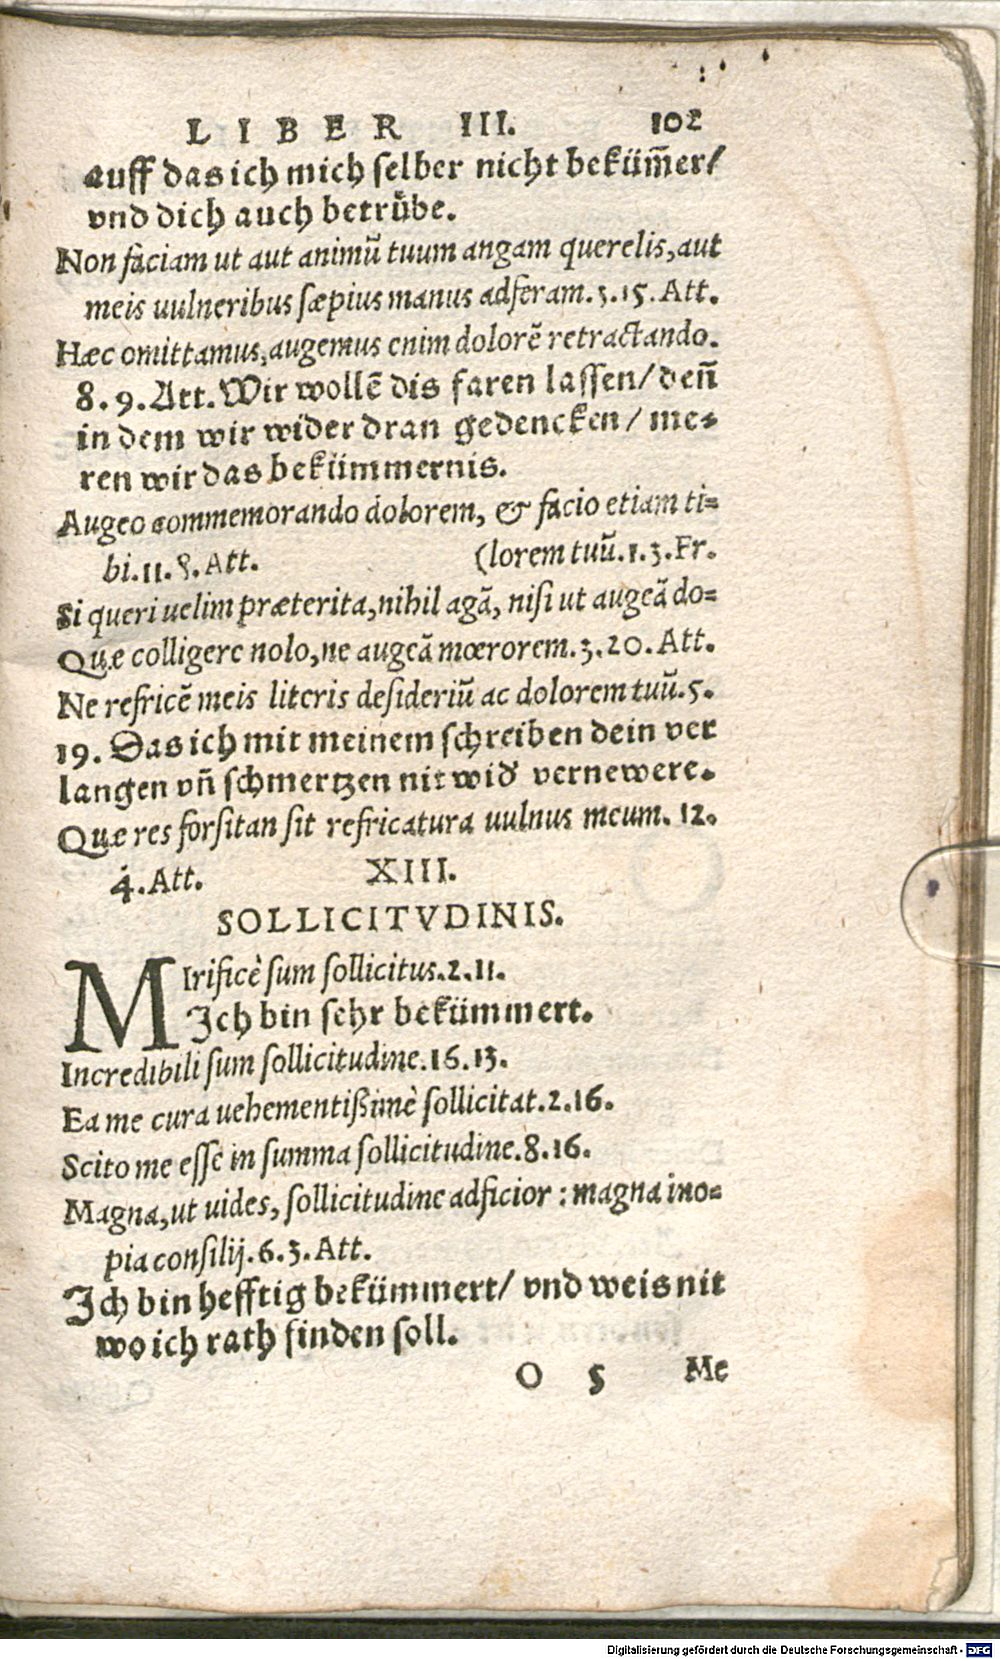 LIBER III. 102
auff das ich mich ſelber nicht beküm̄er/
vnd dich auch betrübe.
Non faciam ut aut animũ tuum angam querelis, aut
meis uulneribus ſæpius manus adferam. 3. 15. Att.
Hæc omittamus, augemus enim dolorẽ retractando.
8. 9. Att. Wir wollẽ dis faren laſſen/ den̄
in dem wir wider dran gedencken/ me-
ren wir das bekümmernis.
Augeo commemorando dolorem, & facio etiam ti-
bi. 11. 8. Att. (lorem tuũ. 1. 3. Fr.
Si queri uelim præterita, nihil agã, niſi ut augeã do-
Quæ colligere nolo, ne augeã mœrorem. 3. 20. Att.
Ne refricẽ meis literis deſideriũ ac dolorem tuũ. 5.
19. Das ich mit meinem ſchreiben dein ver
langen vn̄ ſchmertzen nit wid' vernewere.
Quæ res forſitan ſit refricatura uulnus meum. 12.
4. Att. XIII.
SOLLICITVDINIS.
MIrificè ſum ſollicitus. 2. 11.
Ich bin ſehr bekümmert.
Incredibili ſum ſollicitudine. 16. 13.
Ea me cura uehementißimè ſollicitat. 2. 16.
Scito me eſſe in ſumma ſollicitudine. 8. 16.
Magna, ut uides, ſollicitudine adficior : magna ino-
pia conſilij. 6. 3. Att.
Ich bin hefftig bekümmert/ vnd weis nit
wo ich rath finden ſoll.
O 5 Me
Digitalisierung gefördert durch die Deutsche Forschungsgemeinschaft - DFG